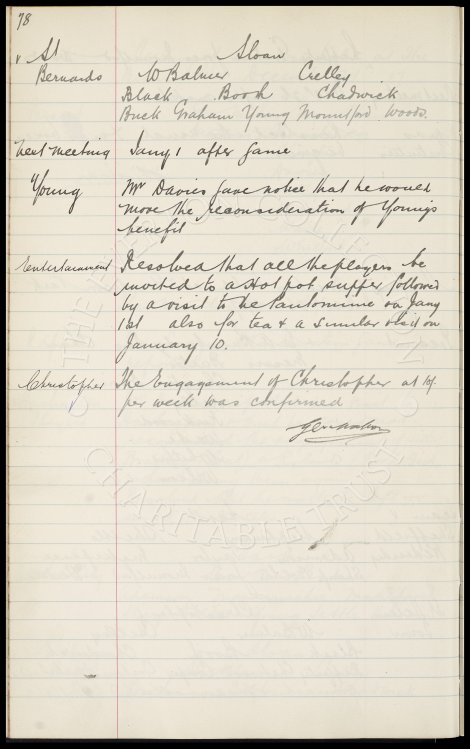 78
v St Sloan
Bernards W Balmer Crelley
Black Booth Chadwick
Buck Graham Young Mountford Woods.
Next meeting Jany 1 after game
Young Mr Davies gave notice that he would
move the reconsideration of Youngs
benefit
Entertainment Resolved that all the players be
invited to a Hot pot supper followed
by a visit to the Pantomime on Jany
1st also for tea & a similar visit on
January 10.
Christopher The Engagement of Christopher at 10/-
per week was confirmed
THE COLLECTION
CHARITABLE TRUST